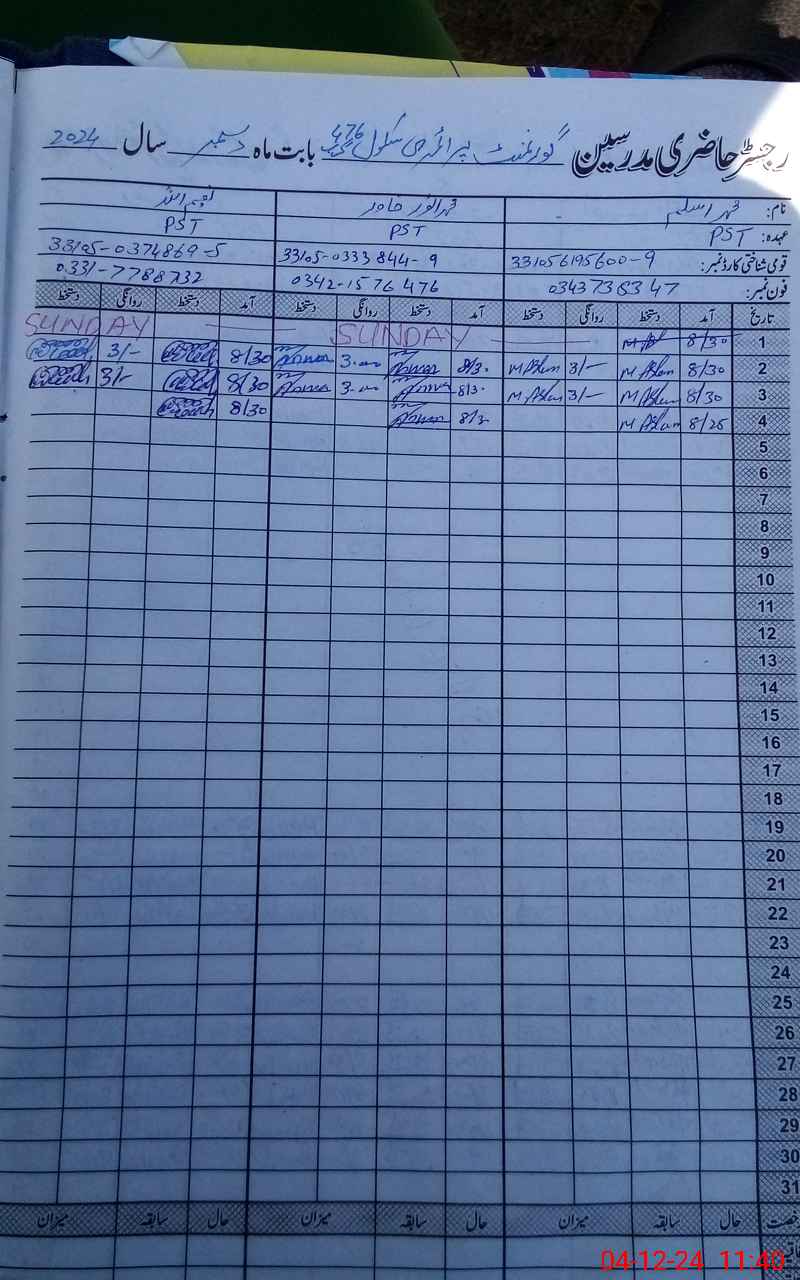 رجسٹر حاضری مدرسین گورنمنٹ پرائمری سکول 476 گ ب بابت ماہ دسمبر سال 2024
نام: محمد اسلم محمد انور خاور نعیم اللہ
عہدہ: PST PST PST
قومی شناختی کارڈ نمبر: 331056195600-9 33105-0333844-9 33105-0374869-5
فون نمبر: 0342-1576476 0331-7788732
تاریخ آمد دستخط روانگی دستخط آمد دستخط روانگی دستخط آمد دستخط روانگی دستخط
1 8/30 SUNDAY SUNDAY
2 8/30 M Aslam 3/- M Aslam 8/3. Anwar 3.00 Anwar 8/30 3/-
3 8/30 M Aslam 3/- M Aslam 8/3. Anwar 3.00 Anwar 8/30 3/-
4 8/25 M Aslam 8/3. Anwar 8/30
5
6
7
8
9
10
11
12
13
14
15
16
17
18
19
20
21
22
23
24
25
26
27
28
29
30
31
رخصت حال سابقہ میزان حال سابقہ میزان حال سابقہ میزان
04-12-24 11:40